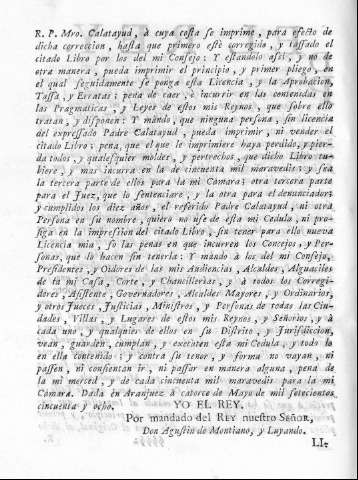 R. P. Mro. Calatayud, à cuya costa se imprime, para efecto de
dicha correccion, hasta que primero estè corregido, y tassado el
citado Libro por los del mi Consejo: Y estandolo assi, y no de
otra manera, pueda imprimir el principio, y primer pliego, en
el qual seguidamente se ponga esta Licencia, y la Aprobacion,
Tassa, y Erratas; pena de caer, è incurrir en las contenidas en
las Pragmaticas, y Leyes de estos mis Reynos, que sobre ello
tratan, y disponen: Y mando, que ninguna persona, sin licencia
del expressado Padre Calatayud, pueda imprimir, ni vender el
citado Libro; pena, que el que le imprimiere haya perdido, y pier-
da todos, y qualesquier moldes, y pertrechos, que dicho Libro tu-
biere, y mas incurra en la de cincuenta mil maravedis; y sea
la tercera parte de ellos para la mi Camara; otra tercera parte
para el Juez, que lo sentenciare; y la otra para el denunciador:
y cumplidos los diez años, el referido Padre Calatayud, ni otra
Persona en su nombre, quiero no use de esta mi Cedula, ni pro-
siga en la impression del citado Libro, sin tener para ello nueva
Licencia mia, so las penas en que incurren los Concejos, y Per-
sonas, que lo hacen sin tenerla: Y mando à los del mi Consejo,
Presidentes, y Oidores de las mis Audiencias, Alcaldes, Alguaciles
de la mi Casa, Corte, y Chancillerias, y à todos los Corregi-
dores, Assistente, Governadores, Alcaldes Mayores, y Ordinarios,
y otros Jueces, Justicias, Ministros, y Personas de todas las Ciu-
dades, Villas, y Lugares de estos mis Reynos, y Señorios, y à
cada uno, y qualquier de ellos en su Distrito, y Jurisdiccion,
vean, guarden, cumplan, y executen esta mi Cedula, y todo lo
en ella contenido; y contra su tenor, y forma no vayan, ni
passen, ni consientan ir, ni passar en manera alguna, pena de
la mi merced, y de cada cincuenta mil maravedis para la mi
Camara. Dada en Aranjuez à catorce de Mayo de mil setecientos
cincuenta y ocho. YO EL REY.
Por mandado del REY nuestro Señor,
Don Agustin de Montiano, y Luyando.